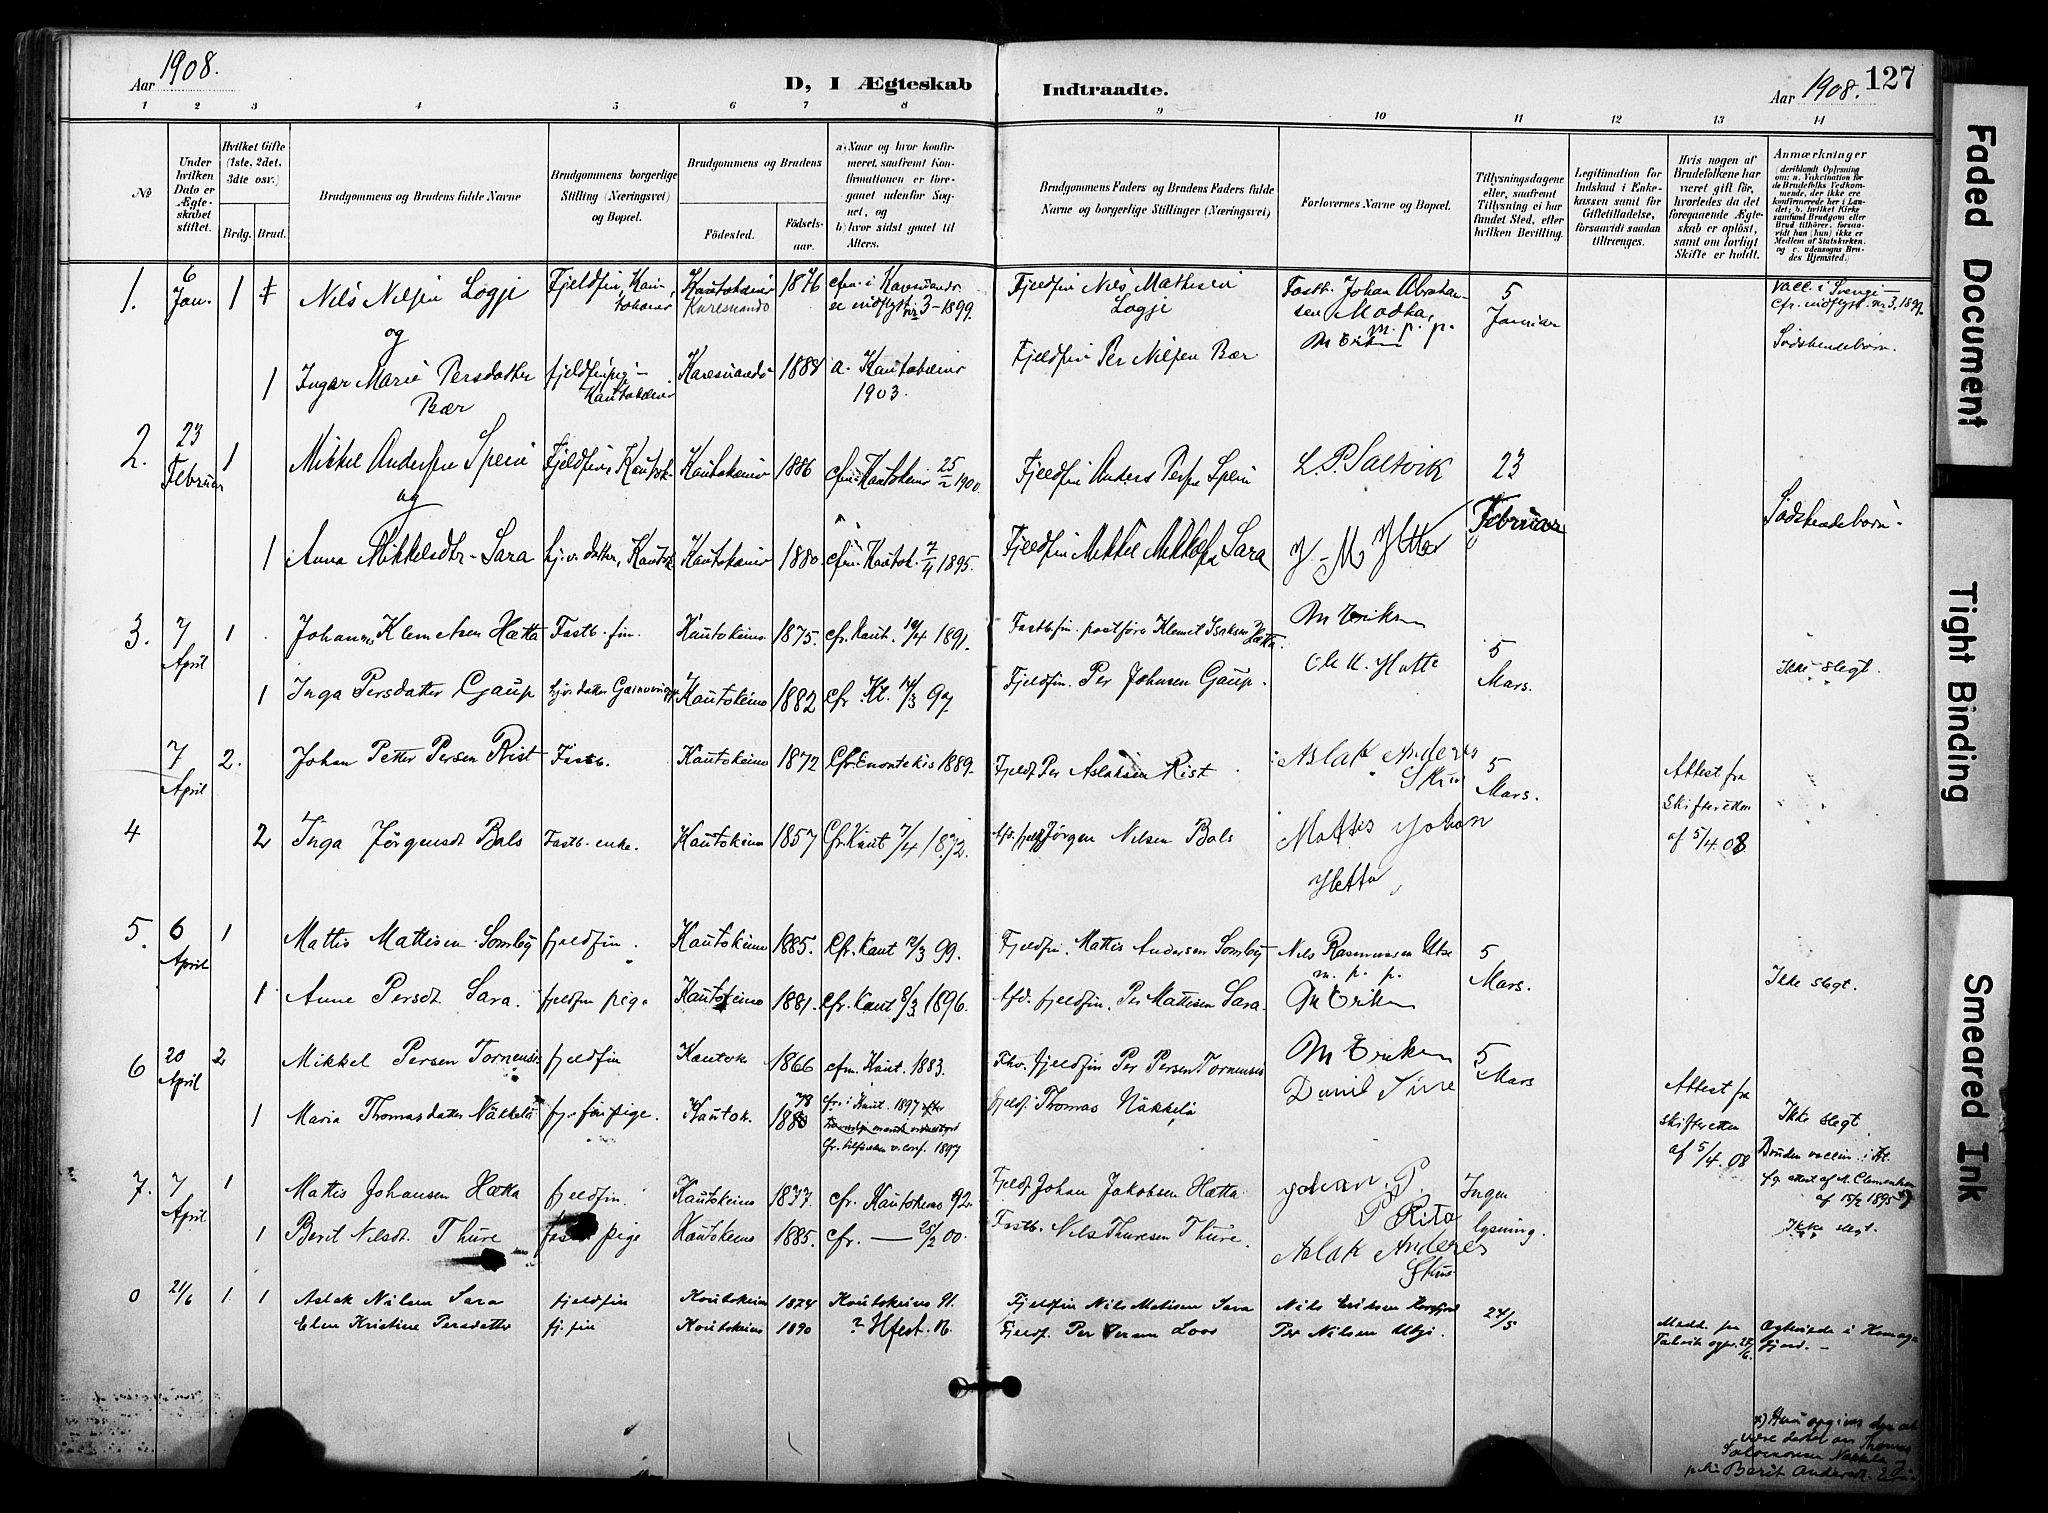 Aar 1908.
D, I Ægteskab Indtraadte.
Aar 1908. 127
1 2 3 4 5 6 7 8 9 10 11 12 13 14
№
Under hvilken Dato er Ægteskabet stiftet.
Hvilket Gifte (1ste, 2det, 3die osv.)
Brdg. Brud.
Brudgommens og Brudens fulde Navne
Brudgommens borgerlige Stilling (Næringsvei) og Bopæl.
Brudgommens og Brudens
Fødested.
Fødselsaar.
a) Naar og hvor konfirmeret, saafremt Konfirmationen er foregaaet udenfor Sognet, og
b) hvor sidst gaaet til Alters.
Brudgommens Faders og Brudens Faders fulde Navne og borgerlige Stillinger (Næringsvei)
Forlovernes Navne og Bopæl.
Tillysningsdagene eller, saafremt Tillysning ei har fundet Sted, efter hvilken Bevilling.
Legitimation for Indskud i Enkekassen samt for Giftetilladelse, forsaavidt saadan tiltrænges.
Hvis nogen af Brudefolkene har været gift før, hvorledes da det foregaaende Ægteskab er opløst, samt om lovligt Skifte er holdt.
Anmærkninger
deriblandt Oplysning om: a. Vakcination for de Brudefolks Vedkommende, der ikke ere konfirmerede her i Landet; b. hvilket Kirkesamfund Brudgom eller Brud tilhører, forsaavidt han (hun) ikke er Medlem af Statskirken, og c. udensogns Brudes Hjemsted.
1. 6 Jan. 1 Nils Nilsen Logje Fjeldfin, Kautokeino Kautokeino Karesuando 1876 cfm. i Karesuando er indflyt nr 3-1899. Fjeldfin Nils Mathisen Logje Fastb. Johan Abrahamsen Madka, m. p. p. 5 Januar Vacc. i Sverige cfr. indflyt. nr 3, 1899.
og
M Eriksen
1 Ingar Marie Persdatter Bær fjeldfinpige Kautokeino Karesuando 1888 a. Kautokeino 1903. Fjeldfin Per Nilsen Bær Sødskendebørn.
2. 23 Februar 1 Mikkel Andersen Spein Fjeldfin, Kautok. Kautokeino 1886 cfm. Kautokeino 25/2 1900. Fjeldfin Anders Persen Spein L. P. Saltvik 23 Februar
og
1 Anna Mikkelsdtr. Sara hj. v. datter, Kautok Kautokeino 1880 cfm. Kautok. 7/4 1895. Fjeldfin Mikkel Mikkelsen Sara Sødskendebørn.
3. 7 April 1 Johannes Klemetsen Hætta Fastb. fin. Kautokeino 1875. cfr. Kaut. 19/4 1891. Fastb. fin. postfører Klemet Isaksen Hætta. M Eriksen 5 Mars.
1 Inga Persdatter Gaup hjv. datter Kautokeino 1882 cfr. Kt. 14/3 97. Fjeldfin. Per Johnsen Gaup. Ole K. Hatte Ikke slegt.
4 7 April 2. Johan Petter Persen Rist Fastb. Kautokeino 1872 Cfr. Enontekis 1889. Fjeldf. Per Aslaksen Rist Aslak Anders Skum 5 Mars. Attest fra skifteretten af 5/4 08
2 Inga Jørgensdt Bals Fastb. enke. Kautokeino 1857 Cfr. Kaut 7/4 1872. Afd. fjeldf. Jørgen Nilsen Bals Mattis Johan Hetta
5. 6 April 1 Mattis Mattisen Somby fjeldfin. Kautokeino 1885. Cfr. Kaut 12/3 99. Fjeldfin. Mattis Andersen Somby Nils Rasmussen Utse m. p. p. 5 Mars.
1 Anne Persdt. Sara. fjeldfin pige Kautokeino 1881. cfr. Kaut 8/3 1896. Afd. fjeldfin. Per Mattisen Sara. M Eriksen Ikke slegt.
6 20 April 2 Mikkel Persen Tornensis fjeldfin Kautok 1866 cfm. Kaut. 1883. Fhv. fjeldfin Per Persen Tornensis M Eriksen 5 Mars Attest fra skifteretten af 5/4 08
1 Maria Thomasdatter Näkkelä fj. finpige. Kautok. 1878 cfr. i Kaut. 1897 fjeldf. Thomas Näkkelä Ikke slegt. Bruden vaccin. i Kt. flg. attest af N. Clemensen af 15/2 1895
7. 7 April 1 Mattis Johansen Hætta fjeldfin. Kautokeino 1877. cfr. Kautokeino 92. Fjeldf. Johan Jakobsen Hætta Johan. P. P Rito Ingen lysning.
1 Berit Nilsdt. Thure fastb pige Kautokeino 1885. cfr. — 25/2 00. Fastb. Nils Thuresen Thure. Aslak Anders Skum Ikke slegt.
0 21/6 1 1 Aslak Nilsen Sara fjeldfin Kautokeino 1874 Kautokeino 91. Fjeldfin Nils Matisen Sara Nils Eriksen 24/5
Elen Kristine Persdatter fj. fin Kautokeino 1890 ? Hfest. Fjeldf. Per Persen Loos Per Nilsen Utsi. Medd. fra Talvik Ægteviede i Komagfjord. –
x) Hun opgives den at være datter av Thomas Salomonsen Näkkelä Berit Andersdt.
Faded Document
Tight Binding
Smeared Ink